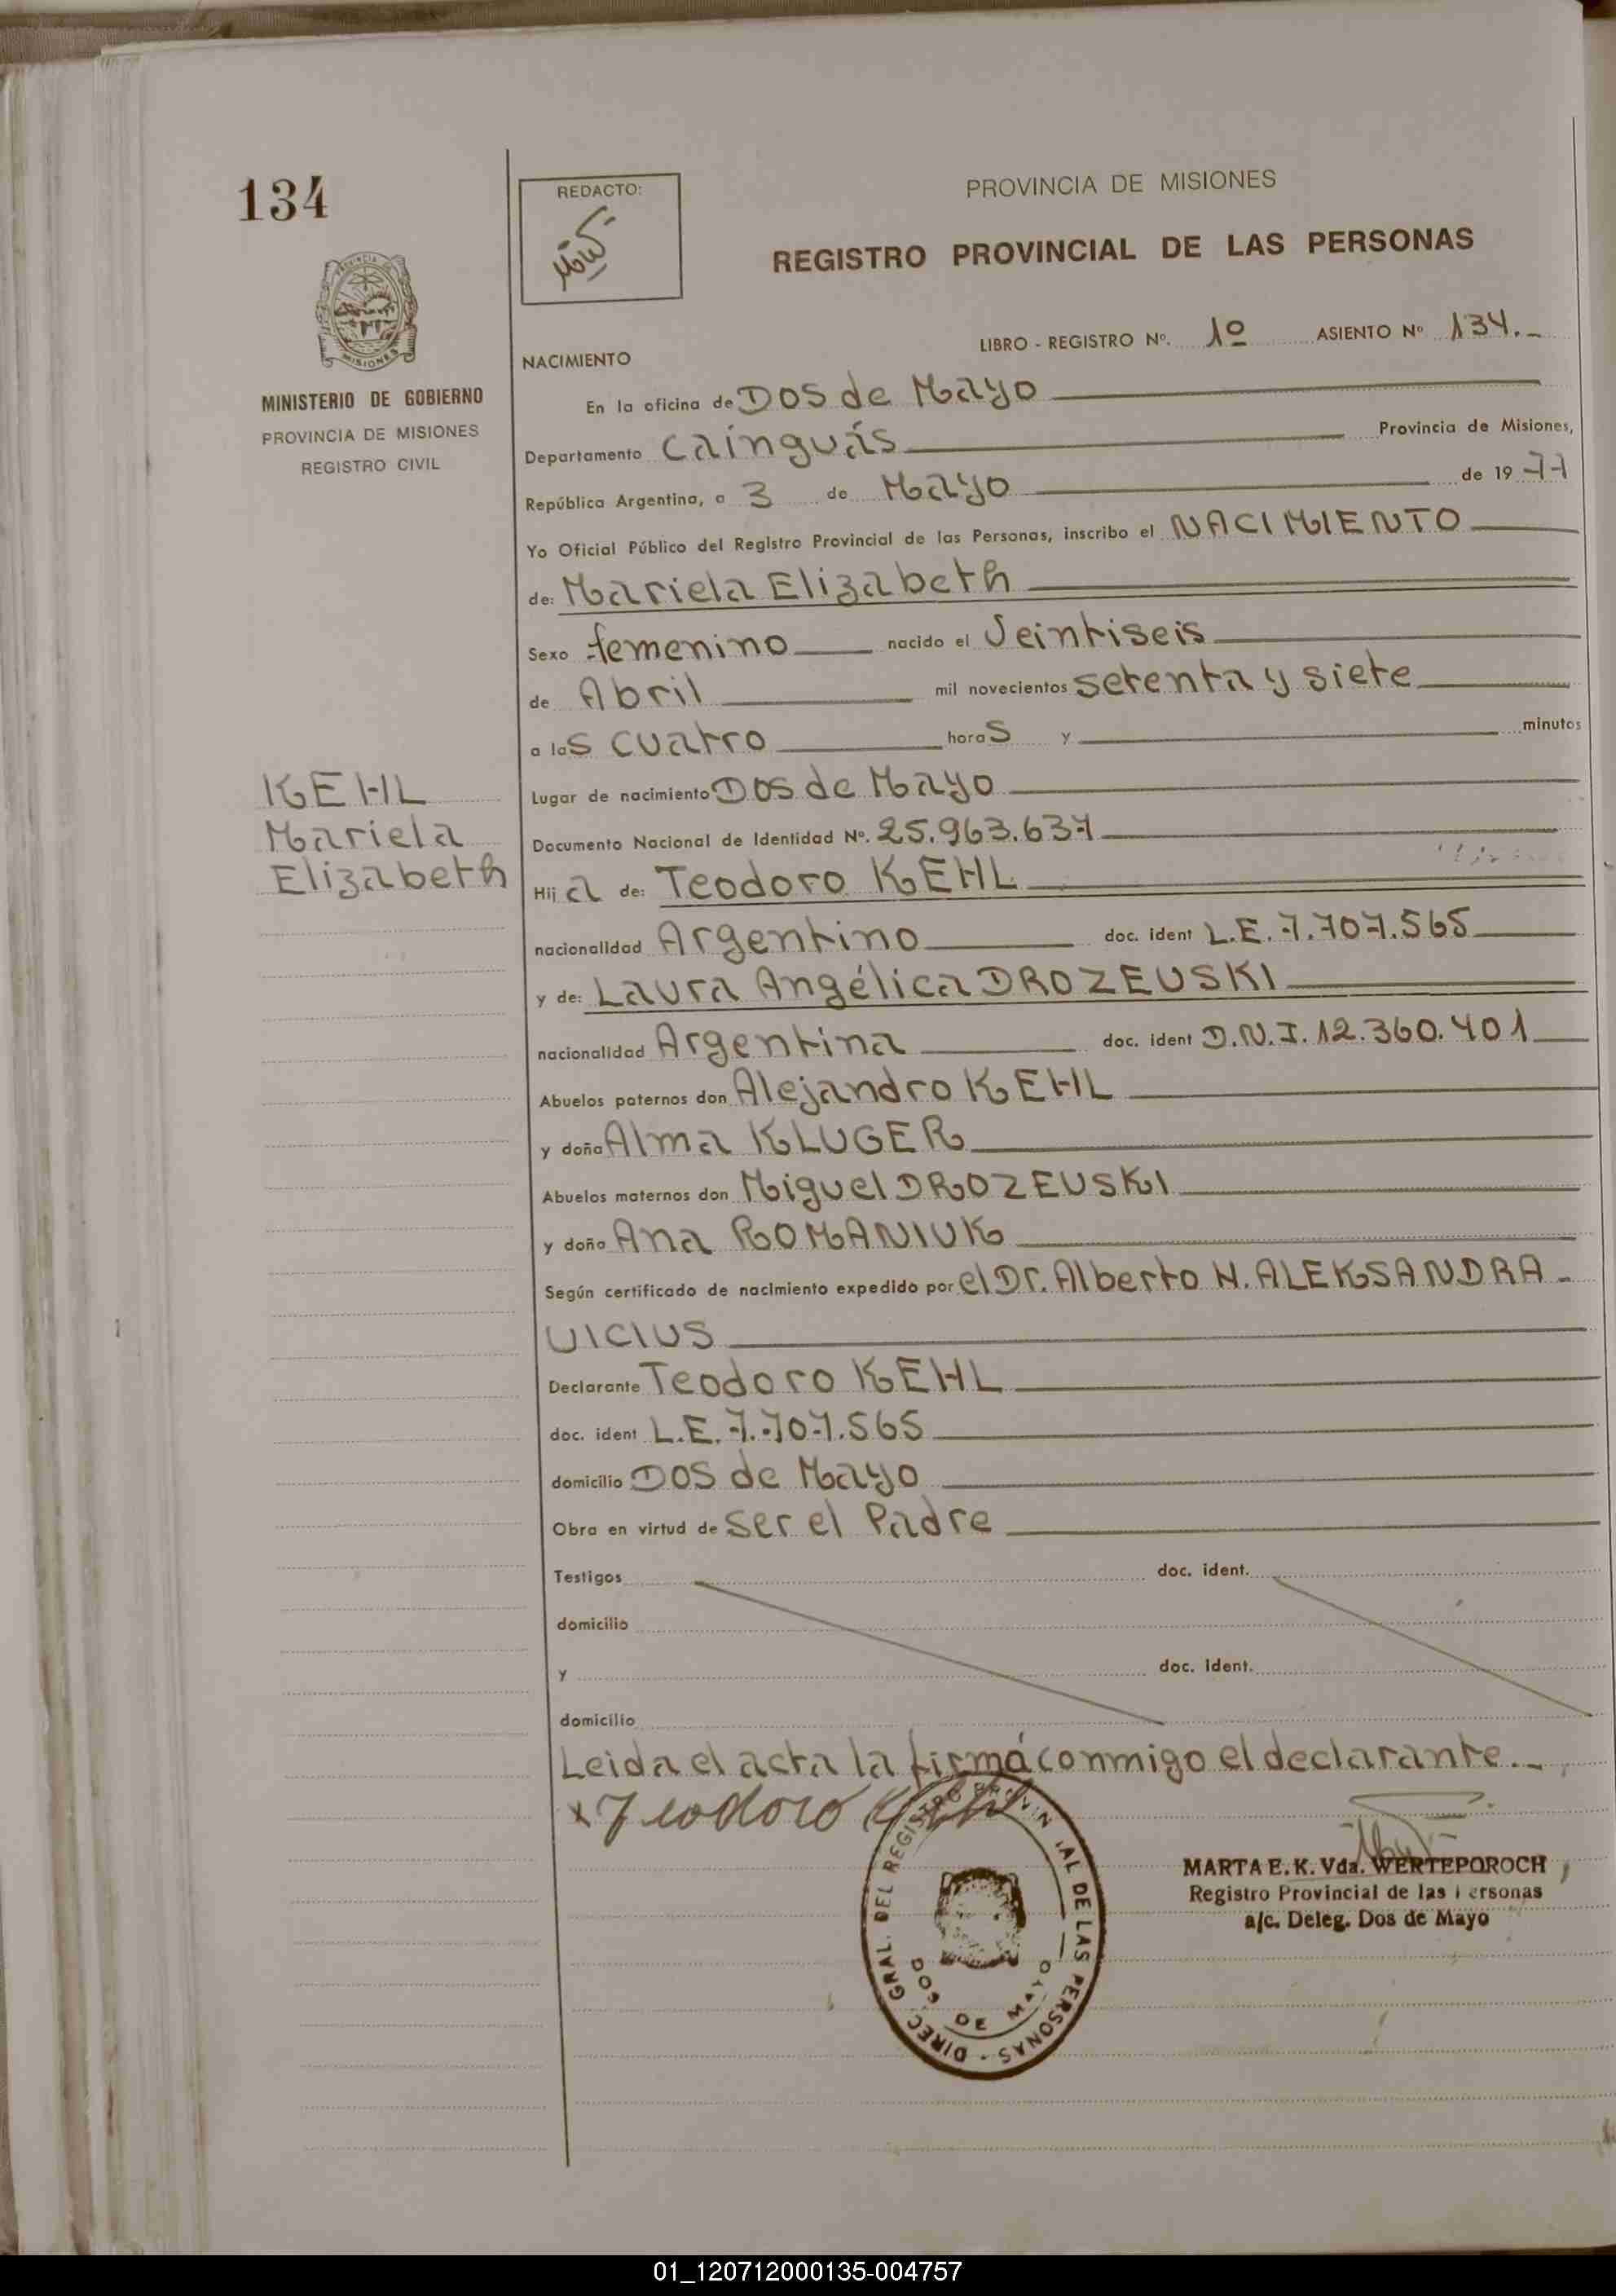 134
REDACTO:
PROVINCIA DE MISIONES
REGISTRO PROVINCIAL DE LAS PERSONAS
MINISTERIO DE GOBIERNO
PROVINCIA DE MISIONES
REGISTRO CIVIL
LIBRO - REGISTRO Nº. 1º ASIENTO Nº 134.-
NACIMIENTO
En la oficina de Dos de Mayo
Departamento Caínguás Provincia de Misiones,
República Argentina, a 3 de Mayo de 1977
Yo Oficial Público del Registro Provincial de las Personas, inscribo el NACIMIENTO
de: Mariela Elizabeth
Sexo femenino nacido el Veintiseis
de Abril mil novecientos setenta y siete
a las cuatro horas y minutos
KEHL
Mariela
Elizabeth
Lugar de nacimiento Dos de Mayo
Documento Nacional de Identidad Nº. 25.963.637
Hija de: Teodoro KEHL
nacionalidad Argentino doc. ident L.E. 7.707.565
y de: Laura Angélica DROZEVSKI
nacionalidad Argentina doc. ident D.N.I. 12.360.401
Abuelos paternos don Alejandro KEHL
y doña Alma KLUGER
Abuelos maternos don Miguel DROZEVSKI
y doña Ana ROMANIUK
Según certificado de nacimiento expedido por el Dr. Alberto N. ALEKSANDRA-
VICIUS
Declarante Teodoro KEHL
doc. ident L.E. 7.707.565
domicilio Dos de Mayo
Obra en virtud de ser el Padre
Testigos doc. ident.
domicilio
y doc. ident.
domicilio
Leida el acta la firmá conmigo el declarante.-
x Teodoro Kehl
DIREC. GRAL. DEL REGISTRO PROVINCIAL DE LAS PERSONAS -
DOS DE MAYO
MARTA E. K. Vda. WERTEPOROCH
Registro Provincial de las Personas
a/c. Deleg. Dos de Mayo
01_120712000135-004757